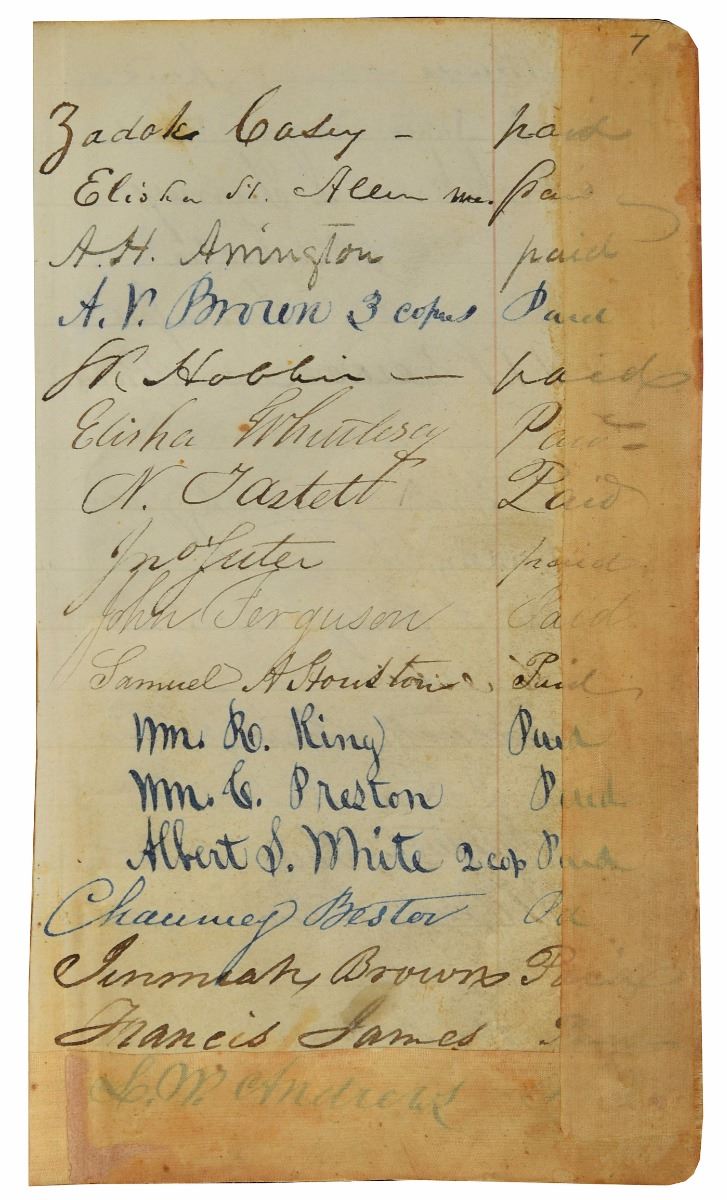 7
Zadok Casey - paid
Elisha H. Allen me. paid
A. H. Arrington paid
A. V. Brown 3 copies Paid
Hoblin — paid
Elisha Whittlesey Paid
N. Tastett Paid
Jno paid
John Ferguson Paid
Samuel A Houston Paid
Wm. R. King Paid
Wm. C. Preston Paid
Albert S. White 2 cop Paid
Chauncey Bestor Pd
Jeremiah Brown Paid
Francis James
L. W. Andrews